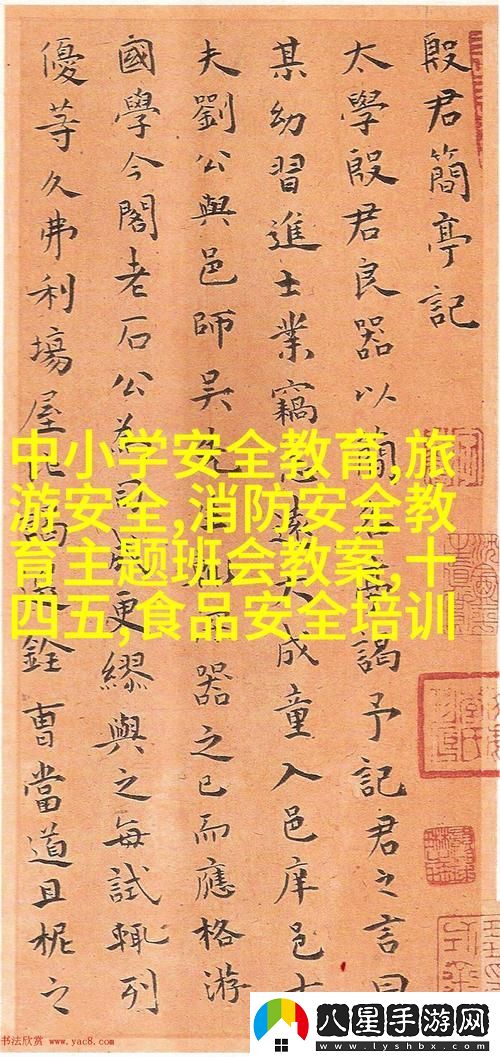 殷君簡亭記
太學殷君良器以簡亭
謁予記君之言曰
某幼習進士業竊
遠大成童入邑庠邑士
夫劉公與邑師吳先生
器之已而應格游
國學今閣老石公為
更繆與之每試輒列
優等久弗利場屋
銓曹當道且柅之
中小学安全教育,旅
游安全,消防安全教
育主题班会教案,十
四五,食品安全培训
书法欣赏 www.yac8.com
八星手游网
www.lyshbx.com